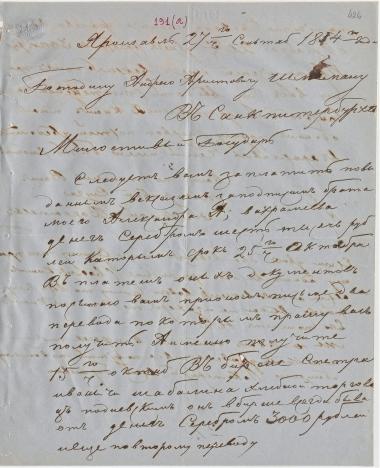 131(а)
426
Ярославль 27го Сентяб 18 4го года
Господину Андрею Христовичу
Въ Санкпитербурхе
Милостивый Государь
Следуетъ вамъ заплатить по вы
даннымъ векселямъ за подписомъ брата
моего Александра А. вахрамеева
денегъ Серебромъ шесть тысечь руб
лей которымъ срокъ 25го Октебра
Въ платежъ оныхъ документовъ
посылаю вамъ при ономъ письме два
перевода по которымъ прашу васъ
получить а именно получите
15го октеб Въ бирже Спетра
ивановича шабалина хлебной торгове
цъ подневскимъ онъ в бирже всегда быва
отъ денегъ Серебромъ 3000 рублей
ивще повторому переводу